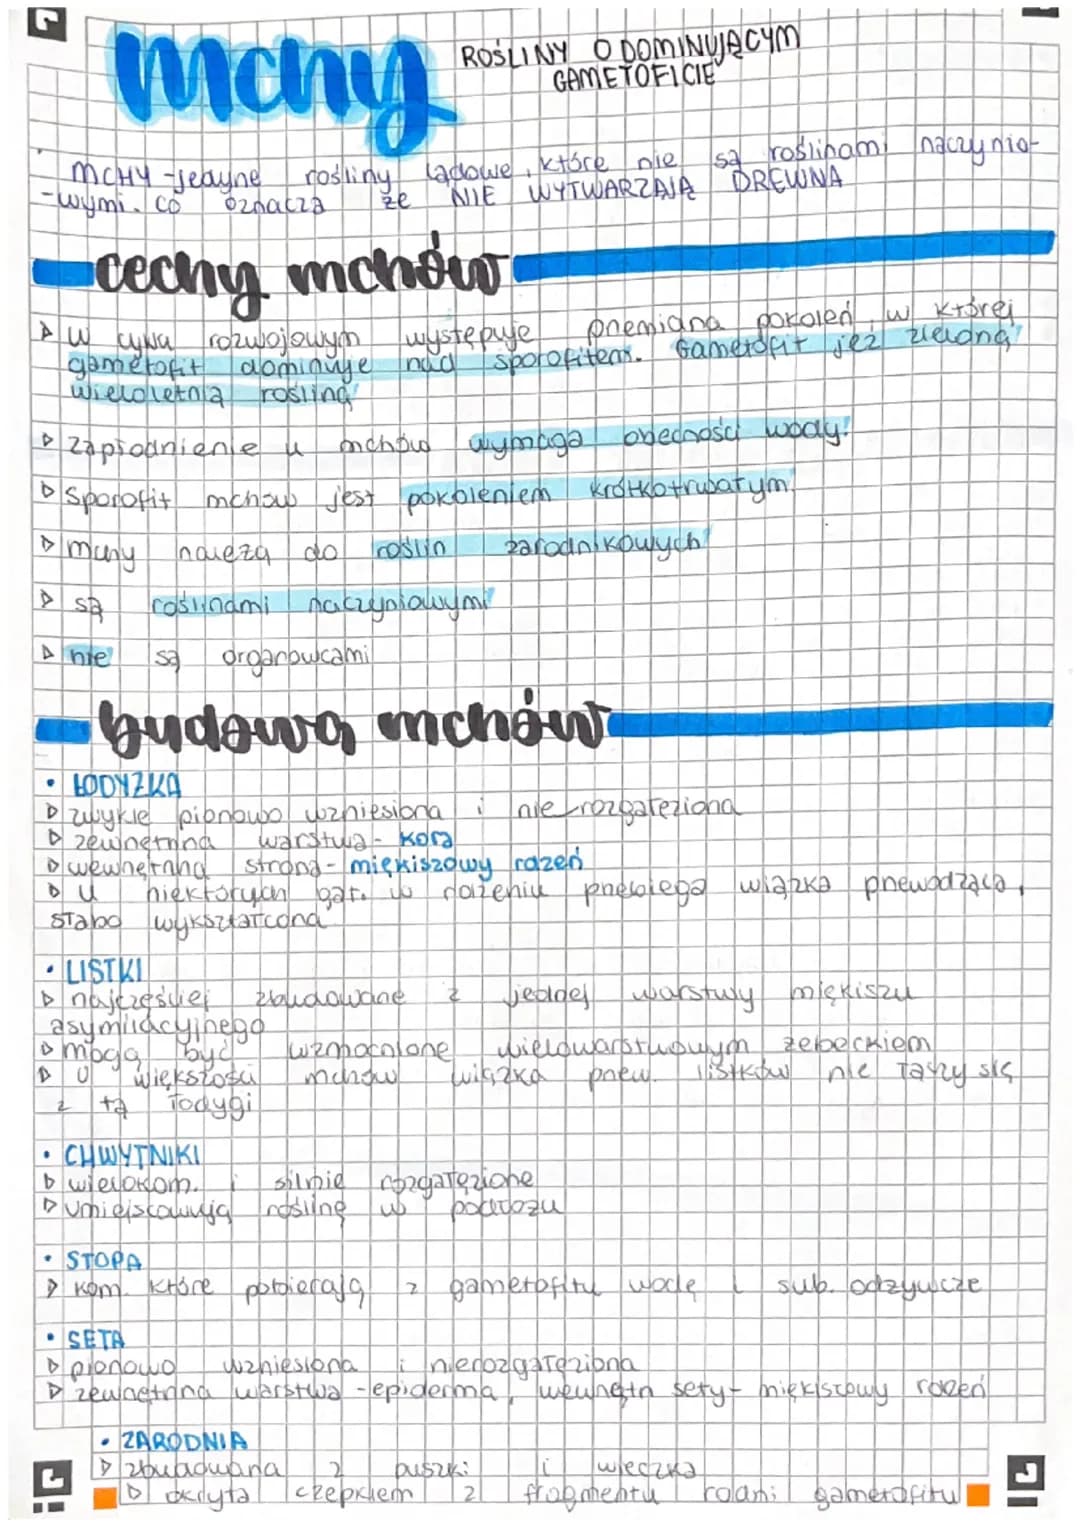 mchy
ROŚLINY O DOMINUJĄCYM
GAMETOFICIE
MCHY - jedyne rośliny lądowe, które nie są roślinami naczynio-
-wymi. co oznacza że NIE WYTWARZAJĄ DREWNA
cechy mchów
▷ W cyklu rozwojowym występuje przemiana pokoleń, w której
gametofit dominuje nad sporofitem. Gametofit jeż zieloną
wieloletnią rośliną
▷ zapłodnienie u mchów wymaga obecności wody!
▷ Sporofit mchów jest pokoleniem krótkotrwałym
▷ mchy należą do roślin zarodnikowych
▷ są roślinami naczyniowymi
▷ nie są organowcami
budowa mchów
• ŁODYŻKA
▷ zwykle pionowo wzniesiona i nie rozgałęziona
▷ zewnętrzna warstwa - kora
▷ wewnętrzna strona - miękiszowy rdzeń
▷ U niektórych gat. w rdzeniu przebiega wiązka przewodząca,
słabo wykształcona
• LISTKI
▷ najczęściej zbudowane z jednej warstwy miękiszu
asymilacyjnego
▷ mogą być wzmocnione wielowarstwowym żeberkiem
▷ U większości mchów wiązka przew. listków nie łączy się
z tą łodygi
• CHWYTNIKI
▷ wielokom. i silnie rozgałęzione
▷ umiejscowują roślinę w podłożu
• STOPA
▷ kom. które pobierają z gametofitu wodę i sub. odżywcze
• SETA
▷ pionowo wzniesiona i nierozgałęziona
▷ zewnętrzna warstwa - epiderma, wewnętn sety - miękiszowy rdzeń
• ZARODNIA
▷ zbudowana z puszki i wieczka
▷ okryta czepkiem z fragmentu rodni gametofitu